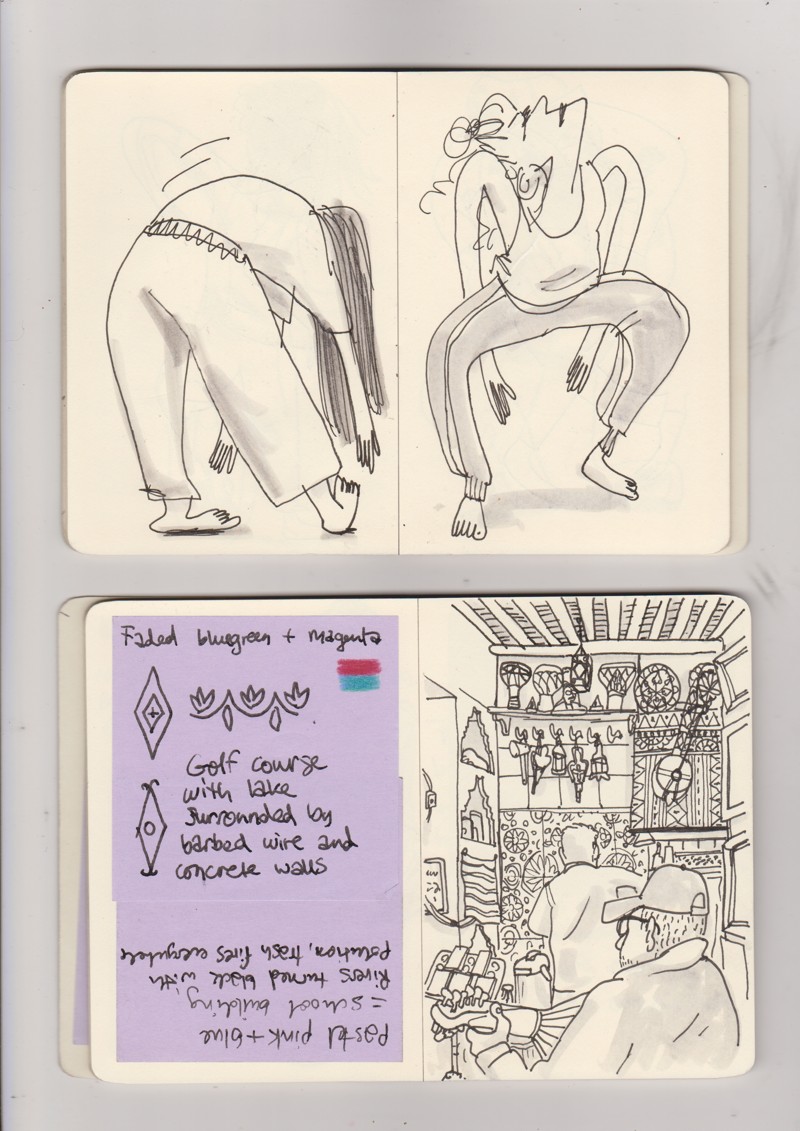 Faded bluegreen + magenta
Golf course
with lake
surrounded by
barbed wire and
concrete walls
Pastel pink + blue
= school building
Rivers turned black with
pollution, trash fires everywhere